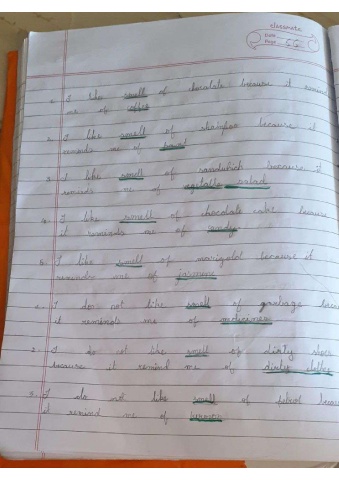 classmate
Date
Page 66
1. I like smell of chocolate because it remind
me of coffee
2. I like smell of because it
reminds me of
3. I like smell of sandwhich because it
reminds me of vegetable salad
4. I like smell of chocolate cake because
it reminds me of candy
5. I like smell of marigold because it
reminds me of jasmine
I do not like smell of garbage
it reminds me of
2. I do not like smell of dirty shoes
because it remind me of dirty
3. I do not like smell of petrol
it remind me of